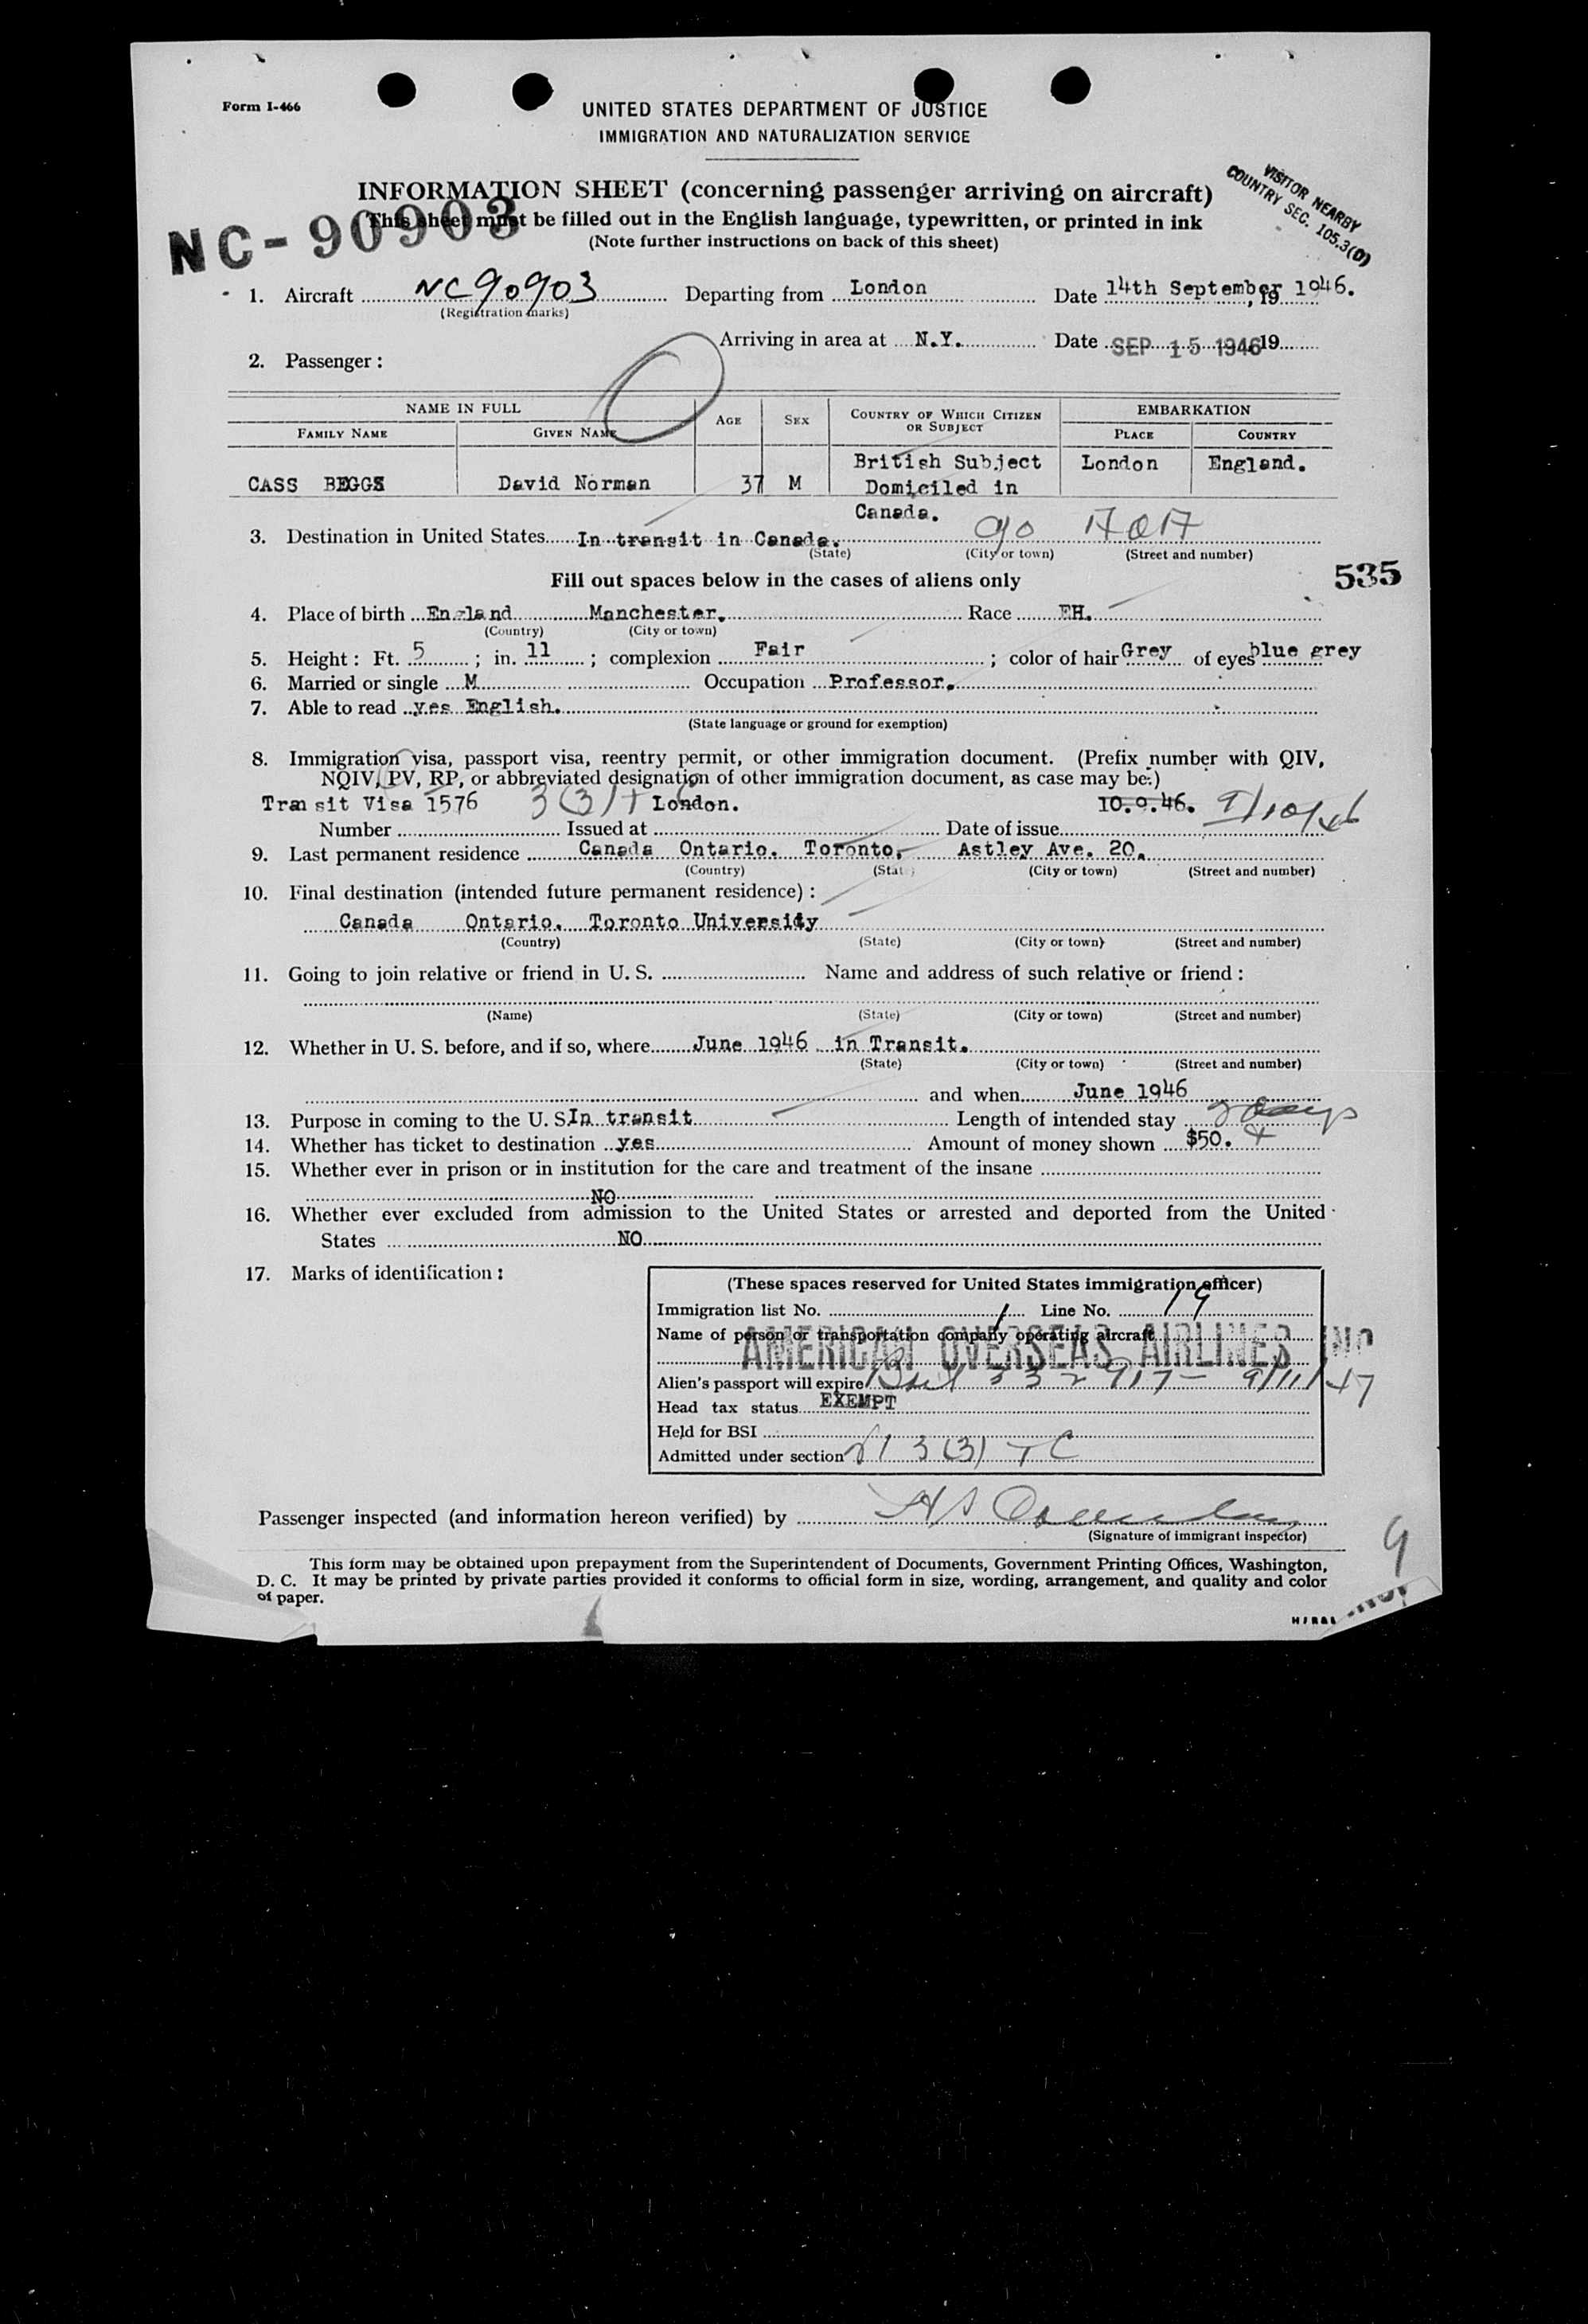 Form I-466
UNITED STATES DEPARTMENT OF JUSTICE
IMMIGRATION AND NATURALIZATION SERVICE
INFORMATION SHEET (concerning passenger arriving on aircraft)
This sheet must be filled out in the English language, typewritten, or printed in ink
(Note further instructions on back of this sheet)
VISITOR NEARBY
COUNTRY SEC. 105.3(D)
NC-90903
1. Aircraft NC90903 Departing from London Date 14th September, 19 1946.
(Registration marks)
Arriving in area at N.Y. Date SEP 15 1946 19
2. Passenger:
NAME IN FULL AGE SEX COUNTRY OF WHICH CITIZEN OR SUBJECT EMBARKATION
FAMILY NAME GIVEN NAME PLACE COUNTRY
CASS BEGGS David Norman 37 M British Subject Domiciled in Canada. London England.
3. Destination in United States In transit in Canada. c/o AOA
(State) (City or town) (Street and number)
Fill out spaces below in the cases of aliens only
535
4. Place of birth England Manchester. Race EH.
(Country) (City or town)
5. Height: Ft. 5; in. 11; complexion Fair; color of hair Grey of eyes blue grey
6. Married or single M Occupation Professor.
7. Able to read yes English.
(State language or ground for exemption)
8. Immigration visa, passport visa, reentry permit, or other immigration document. (Prefix number with QIV,
NQIV, PV, RP, or abbreviated designation of other immigration document, as case may be:)
Transit Visa 1576 3(3)T London. 10.9.46. 9/10/46
Number Issued at Date of issue
9. Last permanent residence Canada Ontario. Toronto, Astley Ave. 20.
(Country) (State) (City or town) (Street and number)
10. Final destination (intended future permanent residence):
Canada Ontario. Toronto University
(Country) (State) (City or town) (Street and number)
11. Going to join relative or friend in U. S. Name and address of such relative or friend:
(Name) (State) (City or town) (Street and number)
12. Whether in U. S. before, and if so, where June 1946 in Transit.
(State) (City or town) (Street and number)
and when June 1946
13. Purpose in coming to the U. S. In transit Length of intended stay 2 days
14. Whether has ticket to destination yes Amount of money shown $50.
15. Whether ever in prison or in institution for the care and treatment of the insane
NO
16. Whether ever excluded from admission to the United States or arrested and deported from the United
States NO
17. Marks of identification:
(These spaces reserved for United States immigration officer)
Immigration list No. 1 Line No. 19
Name of person or transportation company operating aircraft
AMERICAN OVERSEAS AIRLINES INC
Alien's passport will expire 332917 - 9/11/47
Head tax status EXEMPT
Held for BSI
Admitted under section 3(3) TC
Passenger inspected (and information hereon verified) by
(Signature of immigrant inspector)
9
This form may be obtained upon prepayment from the Superintendent of Documents, Government Printing Offices, Washington,
D. C. It may be printed by private parties provided it conforms to official form in size, wording, arrangement, and quality and color
of paper.